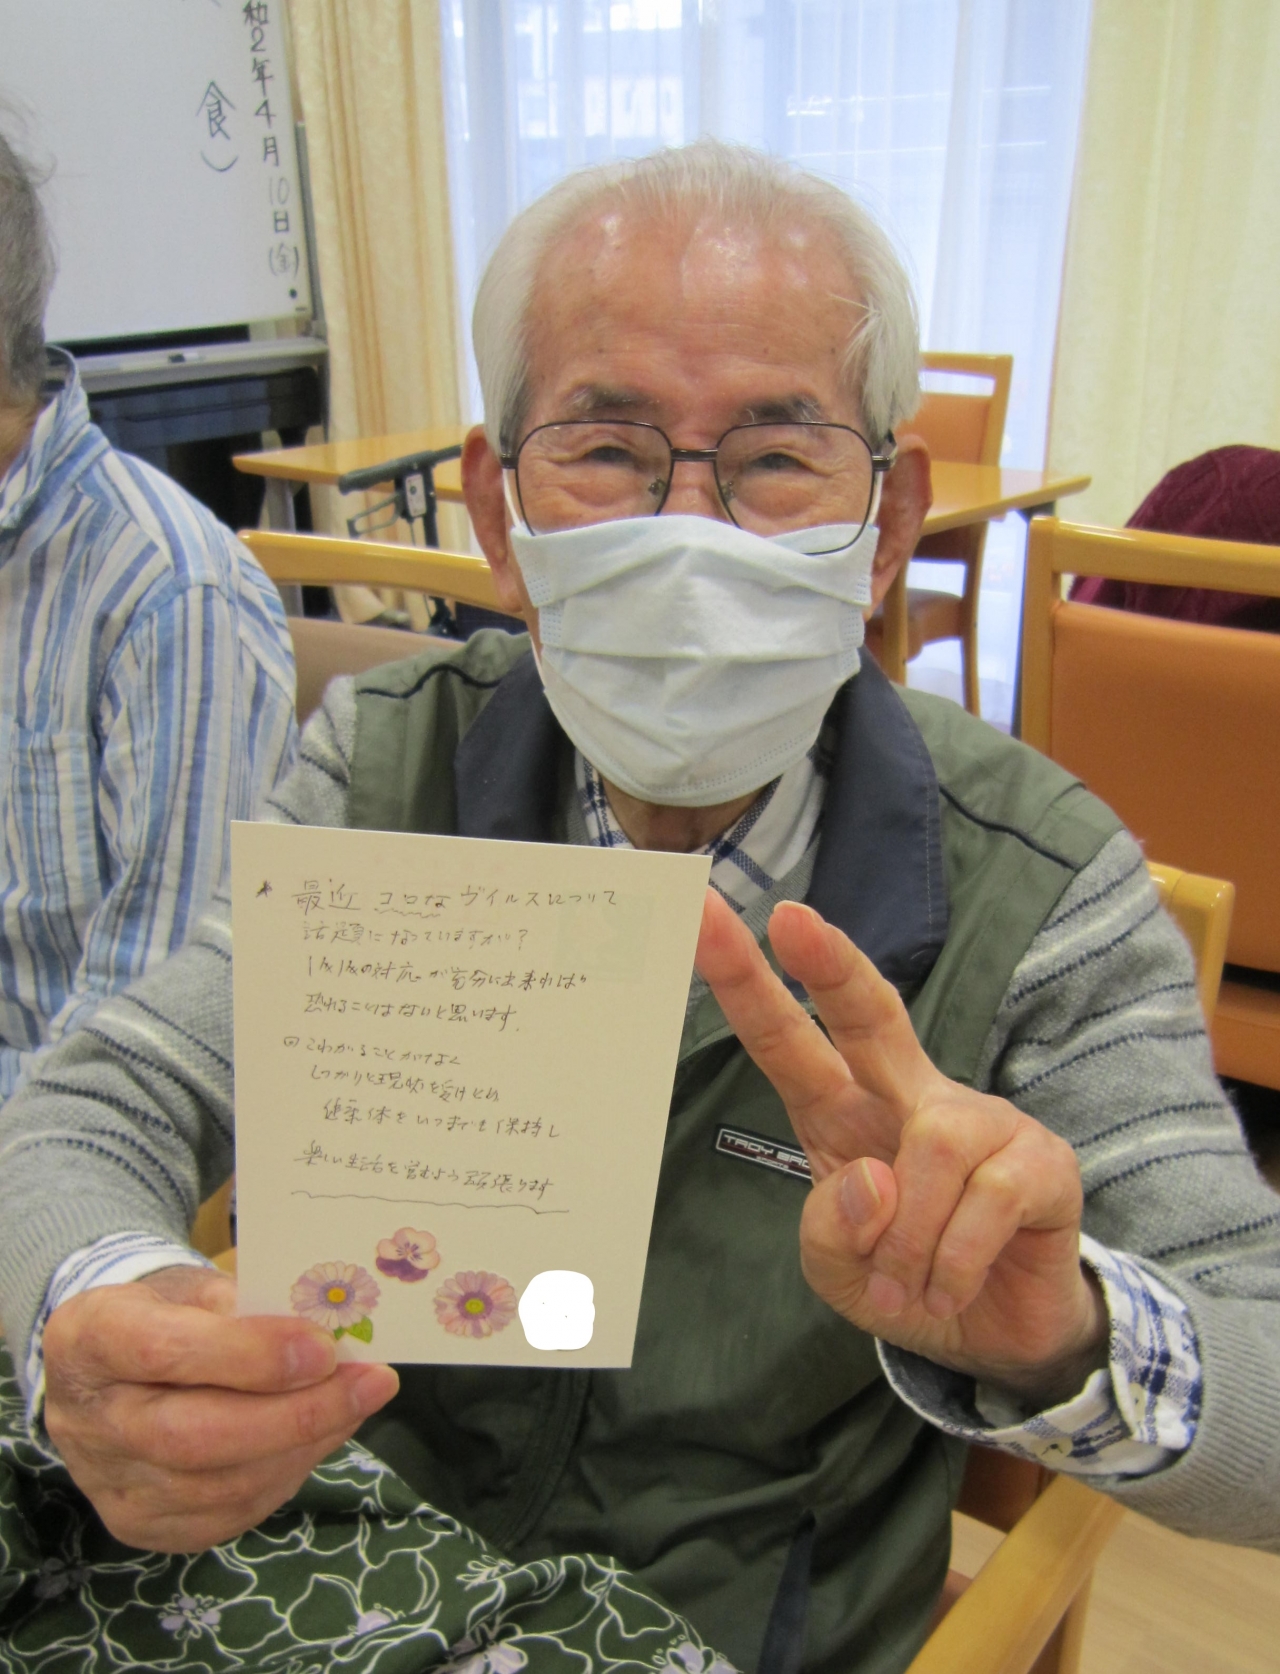 和2年4月10日(金)
食)
最近 コロなヴイルスについて
話題になっていますが?
1人1人の対応が充分に出来れば
恐れることはないと思います。
こわがることがなく
しっかりと現状を受けとめ
健康体をいつまでも保持し
楽しい生活を営むよう頑張ります
TROY BRO
SPORTS